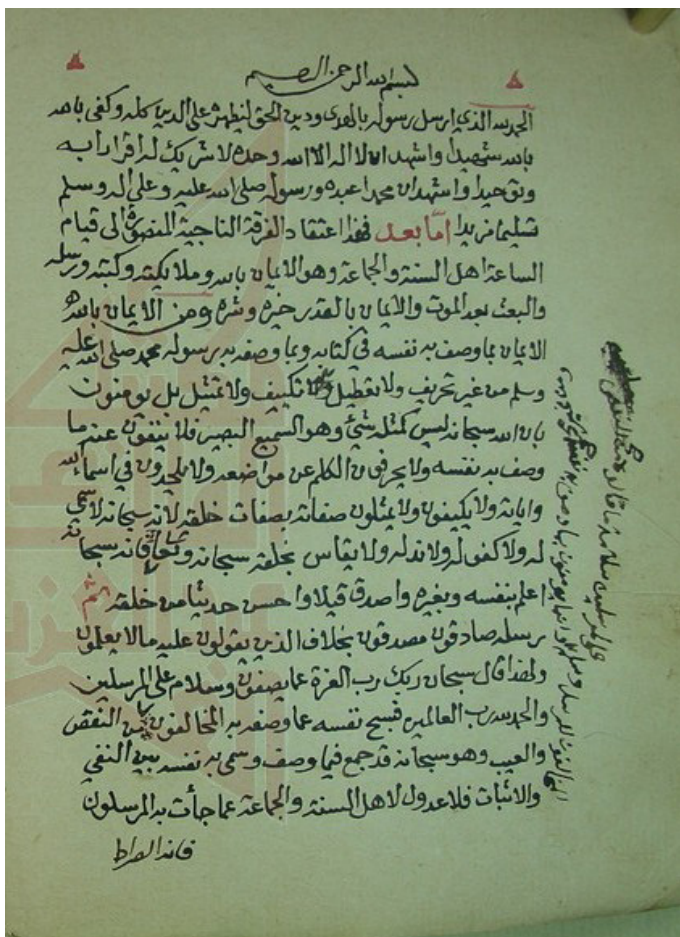 بسم الله الرحمن الرحيم
الحمد لله الذي ارسل رسوله بالهدى ودين الحق ليظهره على الدين كله وكفى بالله
بالله شهيدا واشهد ان لا اله الا الله وحده لا شريك له اقرارا به
وتوحيدا واشهد ان محمدا عبده ورسوله صلى الله عليه وعلى اله وسلم
تسليما مزيدا امّا بعد فهذا اعتقاد الفرقة الناجية المنصورة الى قيام
الساعة اهل السنة والجماعة وهو الايمان بالله وملائكته وكتبه ورسله
والبعث بعد الموت والايمان بالقدر خيره وشره ومن الايمان بالله
الايمان بما وصف به نفسه في كتابه وبما وصفه به رسوله محمد صلى الله عليه
وسلم من غير تحريف ولا تعطيل ولا تكييف ولا تمثيل بل يومنون
بان الله سبحانه ليس كمثله شئ وهو السميع البصير فلا ينفون عنه ما
وصف به نفسه ولا يحرفون الكلم عن مواضعه ولا يلحدون في اسماء الله
واياته ولا يكيفون ولا يمثلون صفاته بصفات خلقه لانه سبحانه لا سمي
له ولا كفو له ولا ند له ولا يقاس بخلقه سبحانه وتعالى فانه سبحانه
اعلم بنفسه وبغيره واصدق قيلا واحسن حديثا من خلقه ثم
رسله صادقون مصدقون بخلاف الذين يقولون عليه مالا يعلمون
ولهذا قال سبحان ربك رب العزة عما يصفون وسلام على المرسلين
والحمد لله رب العالمين فسبح نفسه عما وصفه به المخالفون من النقص
والعيب وهو سبحانه قد جمع فيما وصف وسمى به نفسه بين النفي
والاثبات فلا عدول لاهل السنة والجماعة عما جأت به المرسلون
فانه الصراط
المخالفون للرسل وسلم
على المرسلين لسلامة ما قالوه من النقص